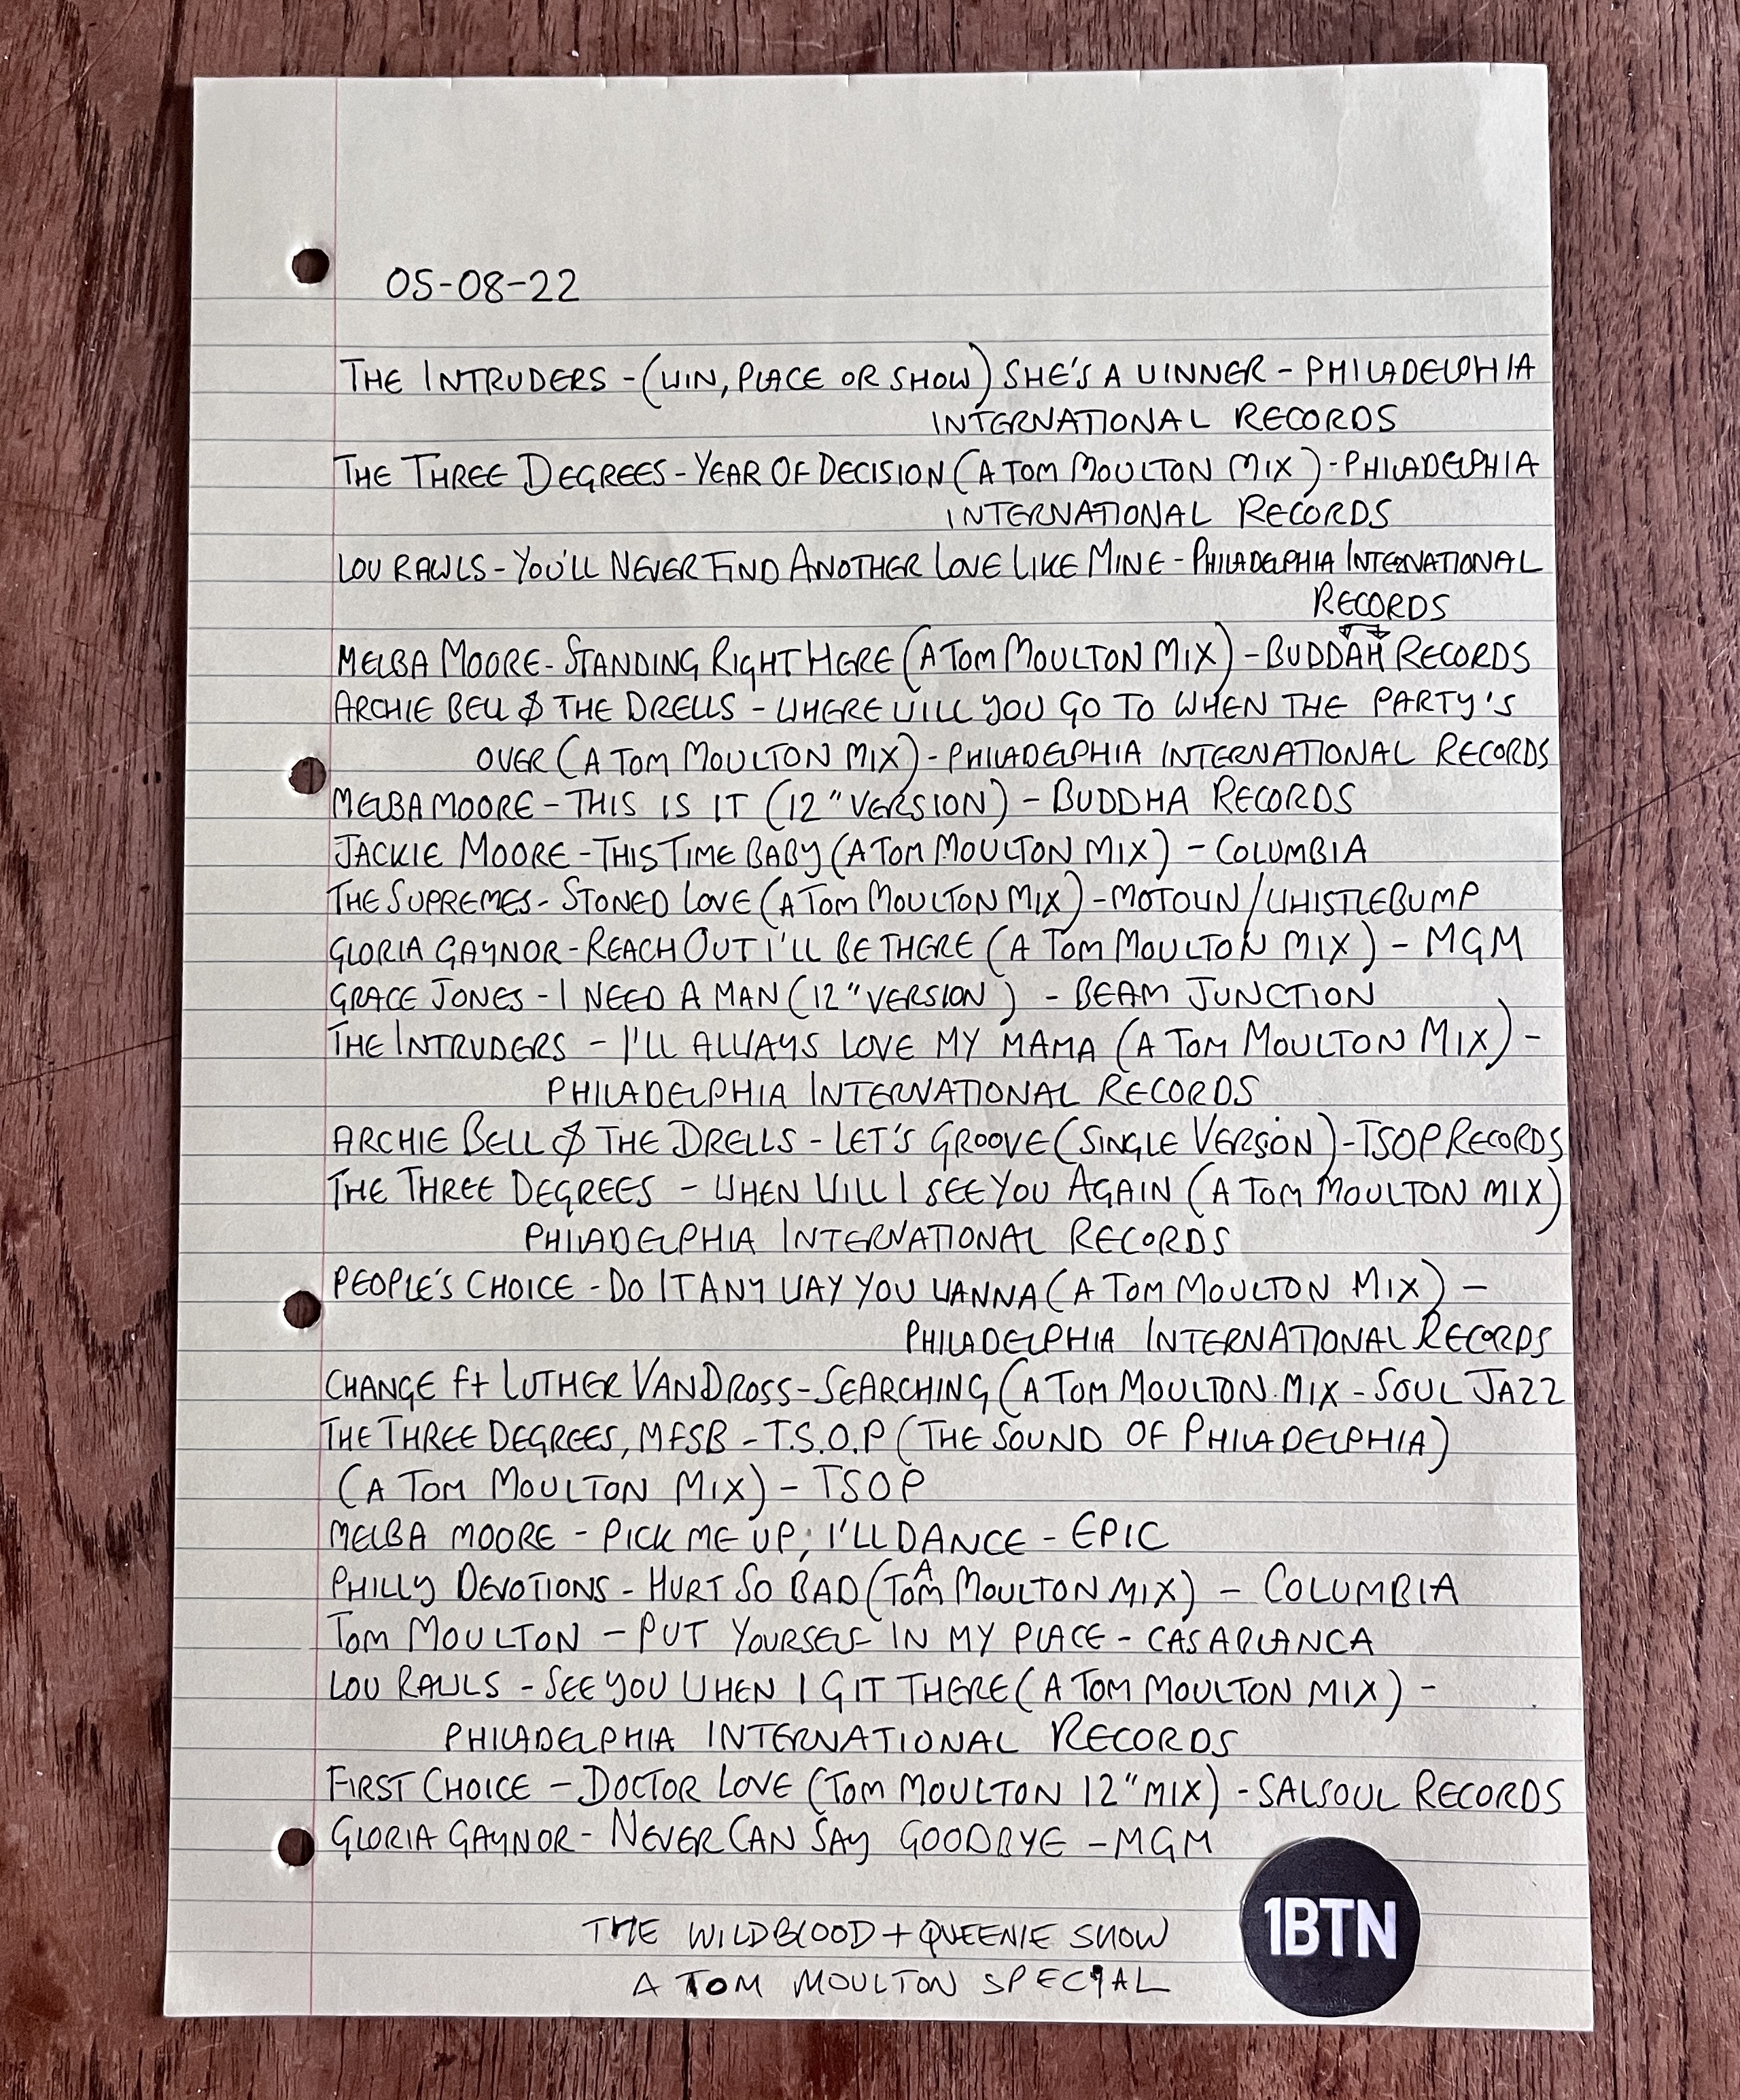 05-08-22
THE INTRUDERS - (WIN, PLACE OR SHOW) SHE'S A WINNER - PHILADELPHIA
INTERNATIONAL RECORDS
THE THREE DEGREES - YEAR OF DECISION (A TOM MOULTON MIX) - PHILADELPHIA
INTERNATIONAL RECORDS
LOU RAWLS - YOU'LL NEVER FIND ANOTHER LOVE LIKE MINE - PHILADELPHIA INTERNATIONAL
RECORDS
MELBA MOORE - STANDING RIGHT HERE (A TOM MOULTON MIX) - BUDDAH RECORDS
ARCHIE BELL & THE DRELLS - WHERE WILL YOU GO TO WHEN THE PARTY'S
OVER (A TOM MOULTON MIX) - PHILADELPHIA INTERNATIONAL RECORDS
MELBA MOORE - THIS IS IT (12" VERSION) - BUDDHA RECORDS
JACKIE MOORE - THIS TIME BABY (A TOM MOULTON MIX) - COLUMBIA
THE SUPREMES - STONED LOVE (A TOM MOULTON MIX) - MOTOWN/WHISTLEBUMP
GLORIA GAYNOR - REACH OUT I'LL BE THERE (A TOM MOULTON MIX) - MGM
GRACE JONES - I NEED A MAN (12" VERSION) - BEAM JUNCTION
THE INTRUDERS - I'LL ALWAYS LOVE MY MAMA (A TOM MOULTON MIX) -
PHILADELPHIA INTERNATIONAL RECORDS
ARCHIE BELL & THE DRELLS - LET'S GROOVE (SINGLE VERSION) - TSOP RECORDS
THE THREE DEGREES - WHEN WILL I SEE YOU AGAIN (A TOM MOULTON MIX)
PHILADELPHIA INTERNATIONAL RECORDS
PEOPLE'S CHOICE - DO IT ANY WAY YOU WANNA (A TOM MOULTON MIX) -
PHILADELPHIA INTERNATIONAL RECORDS
CHANGE ft LUTHER VANDROSS - SEARCHING (A TOM MOULTON MIX - SOUL JAZZ
THE THREE DEGREES, MFSB - T.S.O.P (THE SOUND OF PHILADELPHIA)
(A TOM MOULTON MIX) - TSOP
MELBA MOORE - PICK ME UP, I'LL DANCE - EPIC
PHILLY DEVOTIONS - HURT SO BAD (A TOM MOULTON MIX) - COLUMBIA
TOM MOULTON - PUT YOURSELF IN MY PLACE - CASABLANCA
LOU RAWLS - SEE YOU WHEN I GIT THERE (A TOM MOULTON MIX) -
PHILADELPHIA INTERNATIONAL RECORDS
FIRST CHOICE - DOCTOR LOVE (TOM MOULTON 12" MIX) - SALSOUL RECORDS
GLORIA GAYNOR - NEVER CAN SAY GOODBYE - MGM
THE WILDBLOOD + QUEENIE SHOW
A TOM MOULTON SPECIAL
1BTN